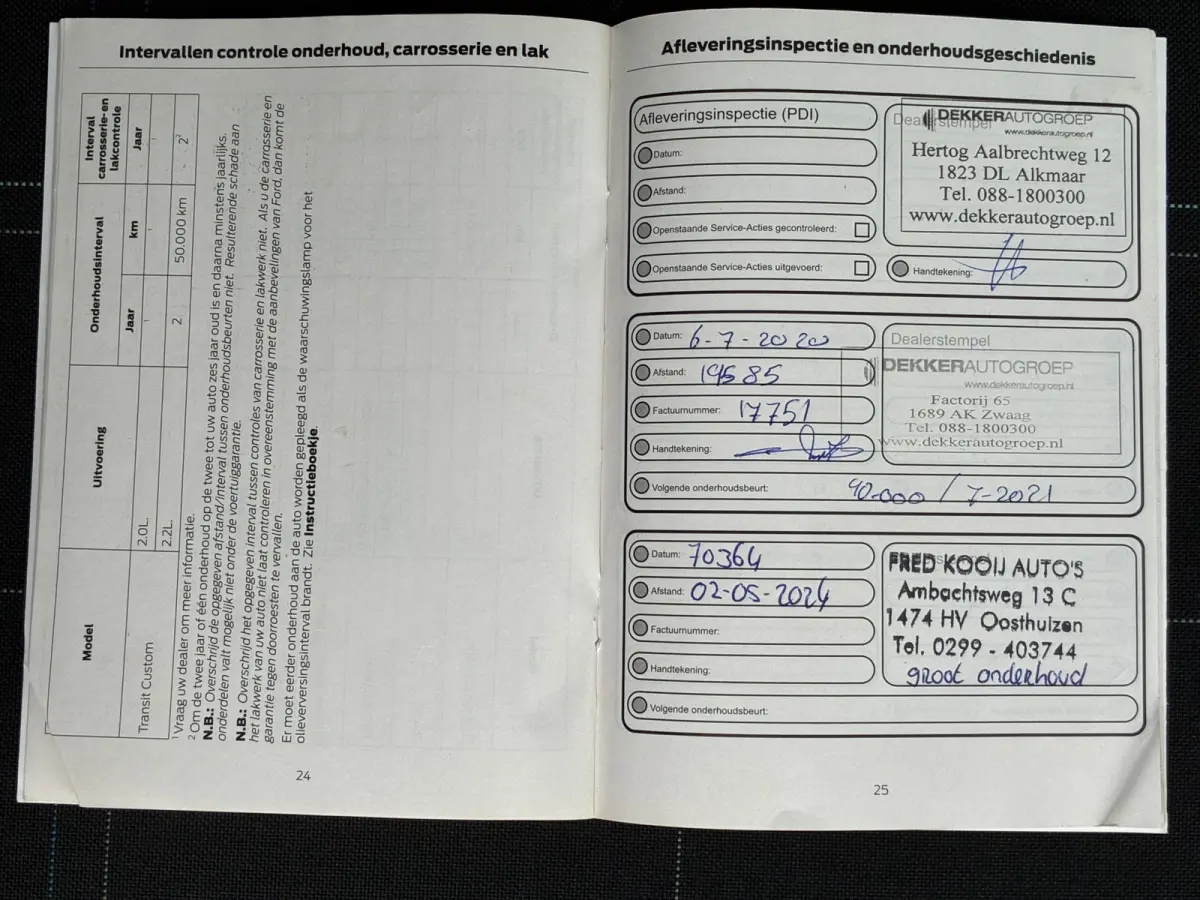 Intervallen controle onderhoud, carrosserie en lak
Model
Uitvoering
Onderhoudsinterval
Interval
carrosserie-en
lakcontrole
Jaar
km
Jaar
Transit Custom
2.0L.
1
1
1
2.2L.
2
50.000 km
2²
¹ Vraag uw dealer om meer informatie.
² Om de twee jaar of één onderhoud op de twee tot uw auto zes jaar oud is en daarna minstens jaarlijks.
N.B.: Overschrijd de opgegeven afstand/interval tussen onderhoudsbeurten niet. Resulterende schade aan
onderdelen valt mogelijk niet onder de voertuiggarantie.
N.B.: Overschrijd het opgegeven interval tussen controles van carrosserie en lakwerk niet. Als u de carrosserie en
het lakwerk van uw auto niet laat controleren in overeenstemming met de aanbevelingen van Ford, dan komt de
garantie tegen doorroesten te vervallen.
Er moet eerder onderhoud aan de auto worden gepleegd als de waarschuwingslamp voor het
olieverversingsinterval brandt. Zie Instructieboekje.
24
Afleveringsinspectie en onderhoudsgeschiedenis
Afleveringsinspectie (PDI)
Datum:
Afstand:
Openstaande Service-Acties gecontroleerd:
Openstaande Service-Acties uitgevoerd:
Dealerstempel
DEKKERAUTOGROEP
www.dekkerautogroep.nl
Hertog Aalbrechtweg 12
1823 DL Alkmaar
Tel. 088-1800300
www.dekkerautogroep.nl
Handtekening:
Datum: 6-7-2020
Afstand: 19585
Factuurnummer: 17751
Handtekening:
Dealerstempel
DEKKERAUTOGROEP
www.dekkerautogroep.nl
Factorij 65
1689 AK Zwaag
Tel. 088-1800300
www.dekkerautogroep.nl
Volgende onderhoudsbeurt: 40.000 / 7-2021
Datum: 70364
Afstand: 02-05-2024
Factuurnummer:
Handtekening:
FRED KOOIJ AUTO'S
Ambachtsweg 13 C
1474 HV Oosthuizen
Tel. 0299 - 403744
groot onderhoud
Volgende onderhoudsbeurt:
25